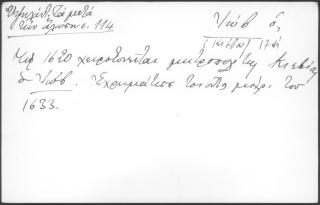 Ὑψηλάντ. Τά μετά
τὴν ἅλωσιν σ. 114
Ἰώβ ὁ,
Τῷ 1620 χειροτονεῖται μητροπολίτης Κιέβου
ὁ Ἰώβ. Ἐχρημάτισε τοιοῦτος μέχρι τοῦ
1633.